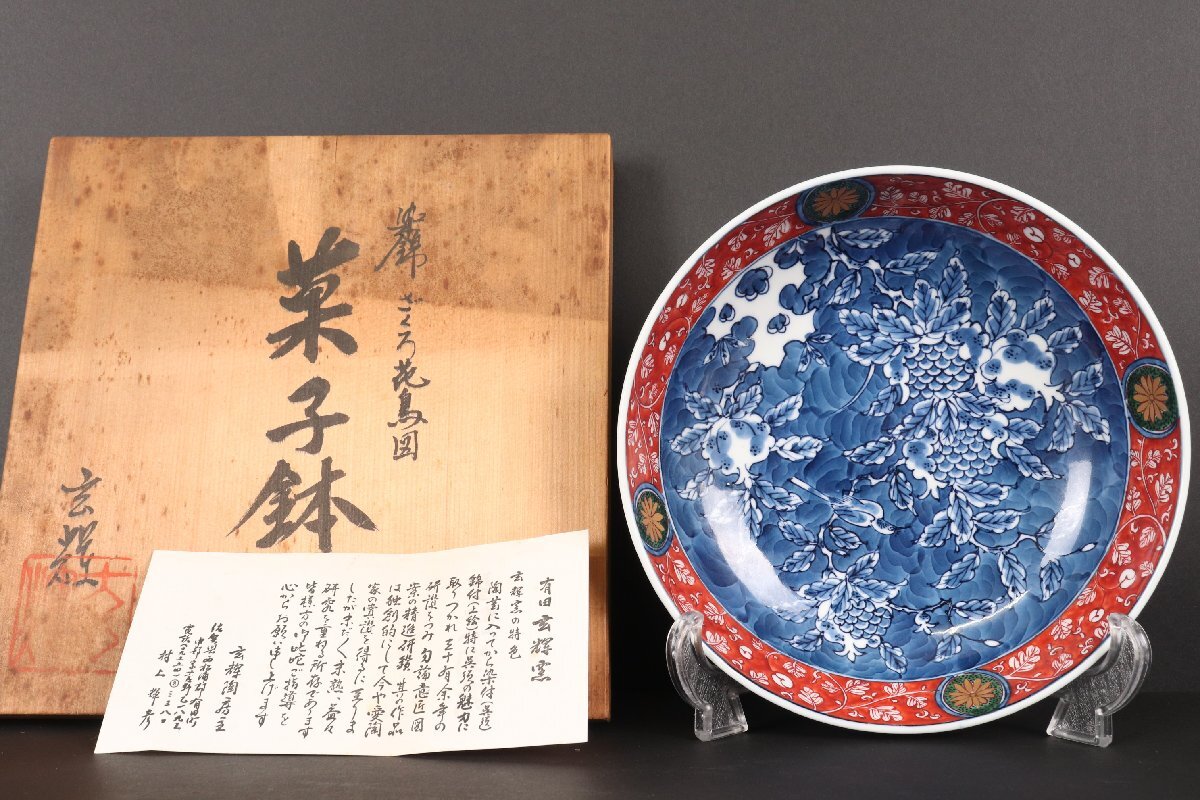 染錦
ざくろ花鳥図
菓子鉢
玄輝
有田玄輝窯
玄輝窯の特色
陶芸に入ってから染付(呉須)
錦付(上絵)特に呉須の魅力に
取りつかれ三十有余年の
研讃をつみ勿論意匠図
案の精進研鑚其の作品
は独創的にして今や愛陶
家の賞讃を得るに至りま
したがまだ〱未熟益々
研究を重ねる所存であります
皆様方の御叱咤御指導を
心からお願い申し上げます
玄輝陶房主
佐賀県西松浦郡有田町
村上輝彦